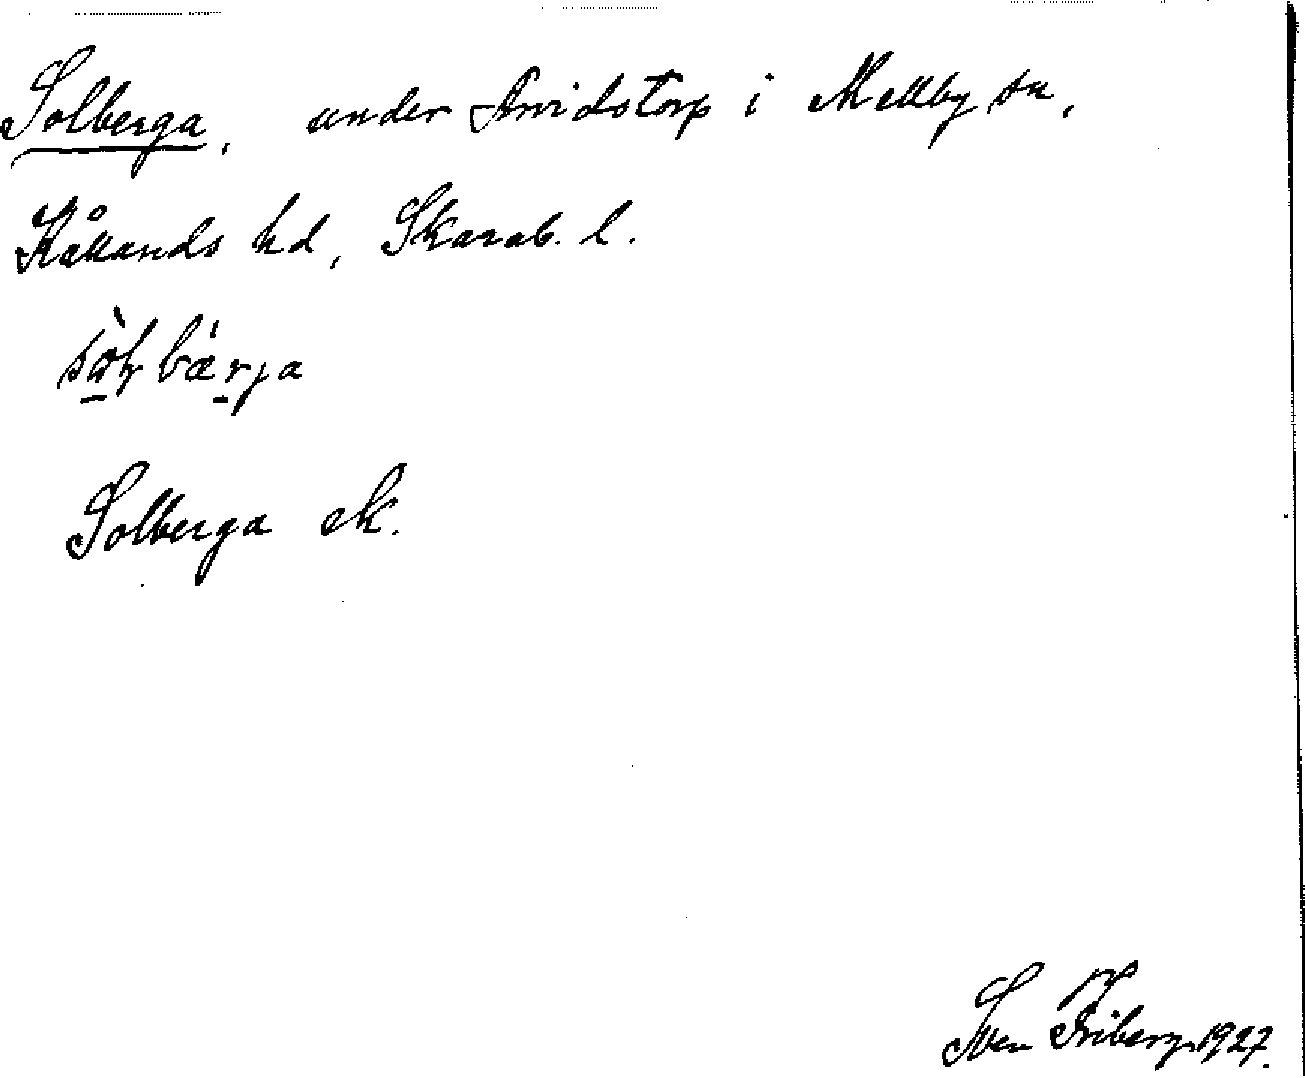 Solberga, under Arvidstorp i Mellby sn,
Kållands hd, Skarab. l.
Solberga ek.
Sven Friberg 1927.